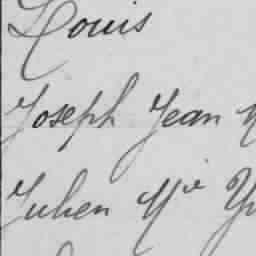 Louis
Joseph Jean
Julien Mie